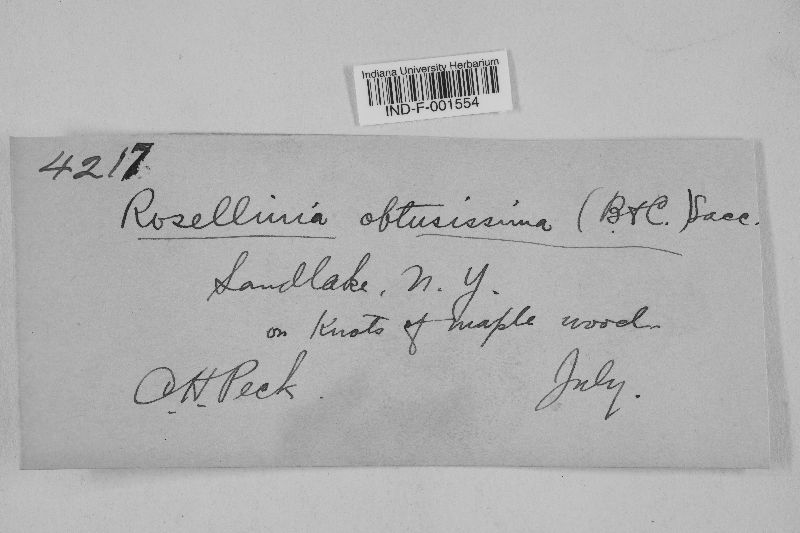 Indiana University Herbarium
IND-F-001554
4217
Rosellinia obtusissima (B. & C.) Sacc.
Sandlake, N. Y.
on Knots of maple wood.
C. H. Peck.
July.